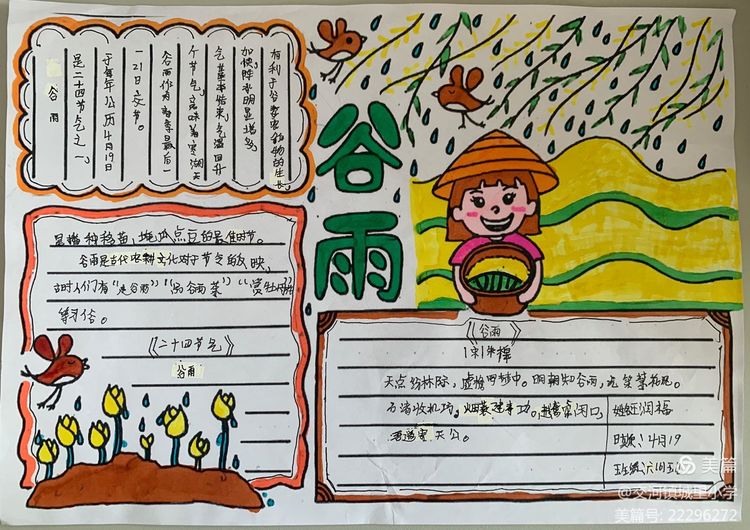 谷雨
谷雨
是二十四节气之一，
于每年公历4月19
-21日交节。
谷雨作为春季最后一
个节气，意味着寒潮天
气基本结束，气温回升
加快，降水明显增多，
有利于谷类农作物的生长。
是播种移苗、埯瓜点豆的最佳时节。
谷雨是古代农耕文化对于节气的反映，
古时人们有“走谷雨”“喝谷雨茶”“赏牡丹花”
等习俗。
《二十四节气》
谷雨
《谷雨》
[宋]朱槔
天点纷林际，虚檐写梦中。明朝知谷雨，
石渚收机巧，烟蓑建事功。越禽牢闭口，
吾道寄天公。
姓名：润福
日期：4月19
班级：六
美篇
@交河镇城里小学
美篇号: 22296272